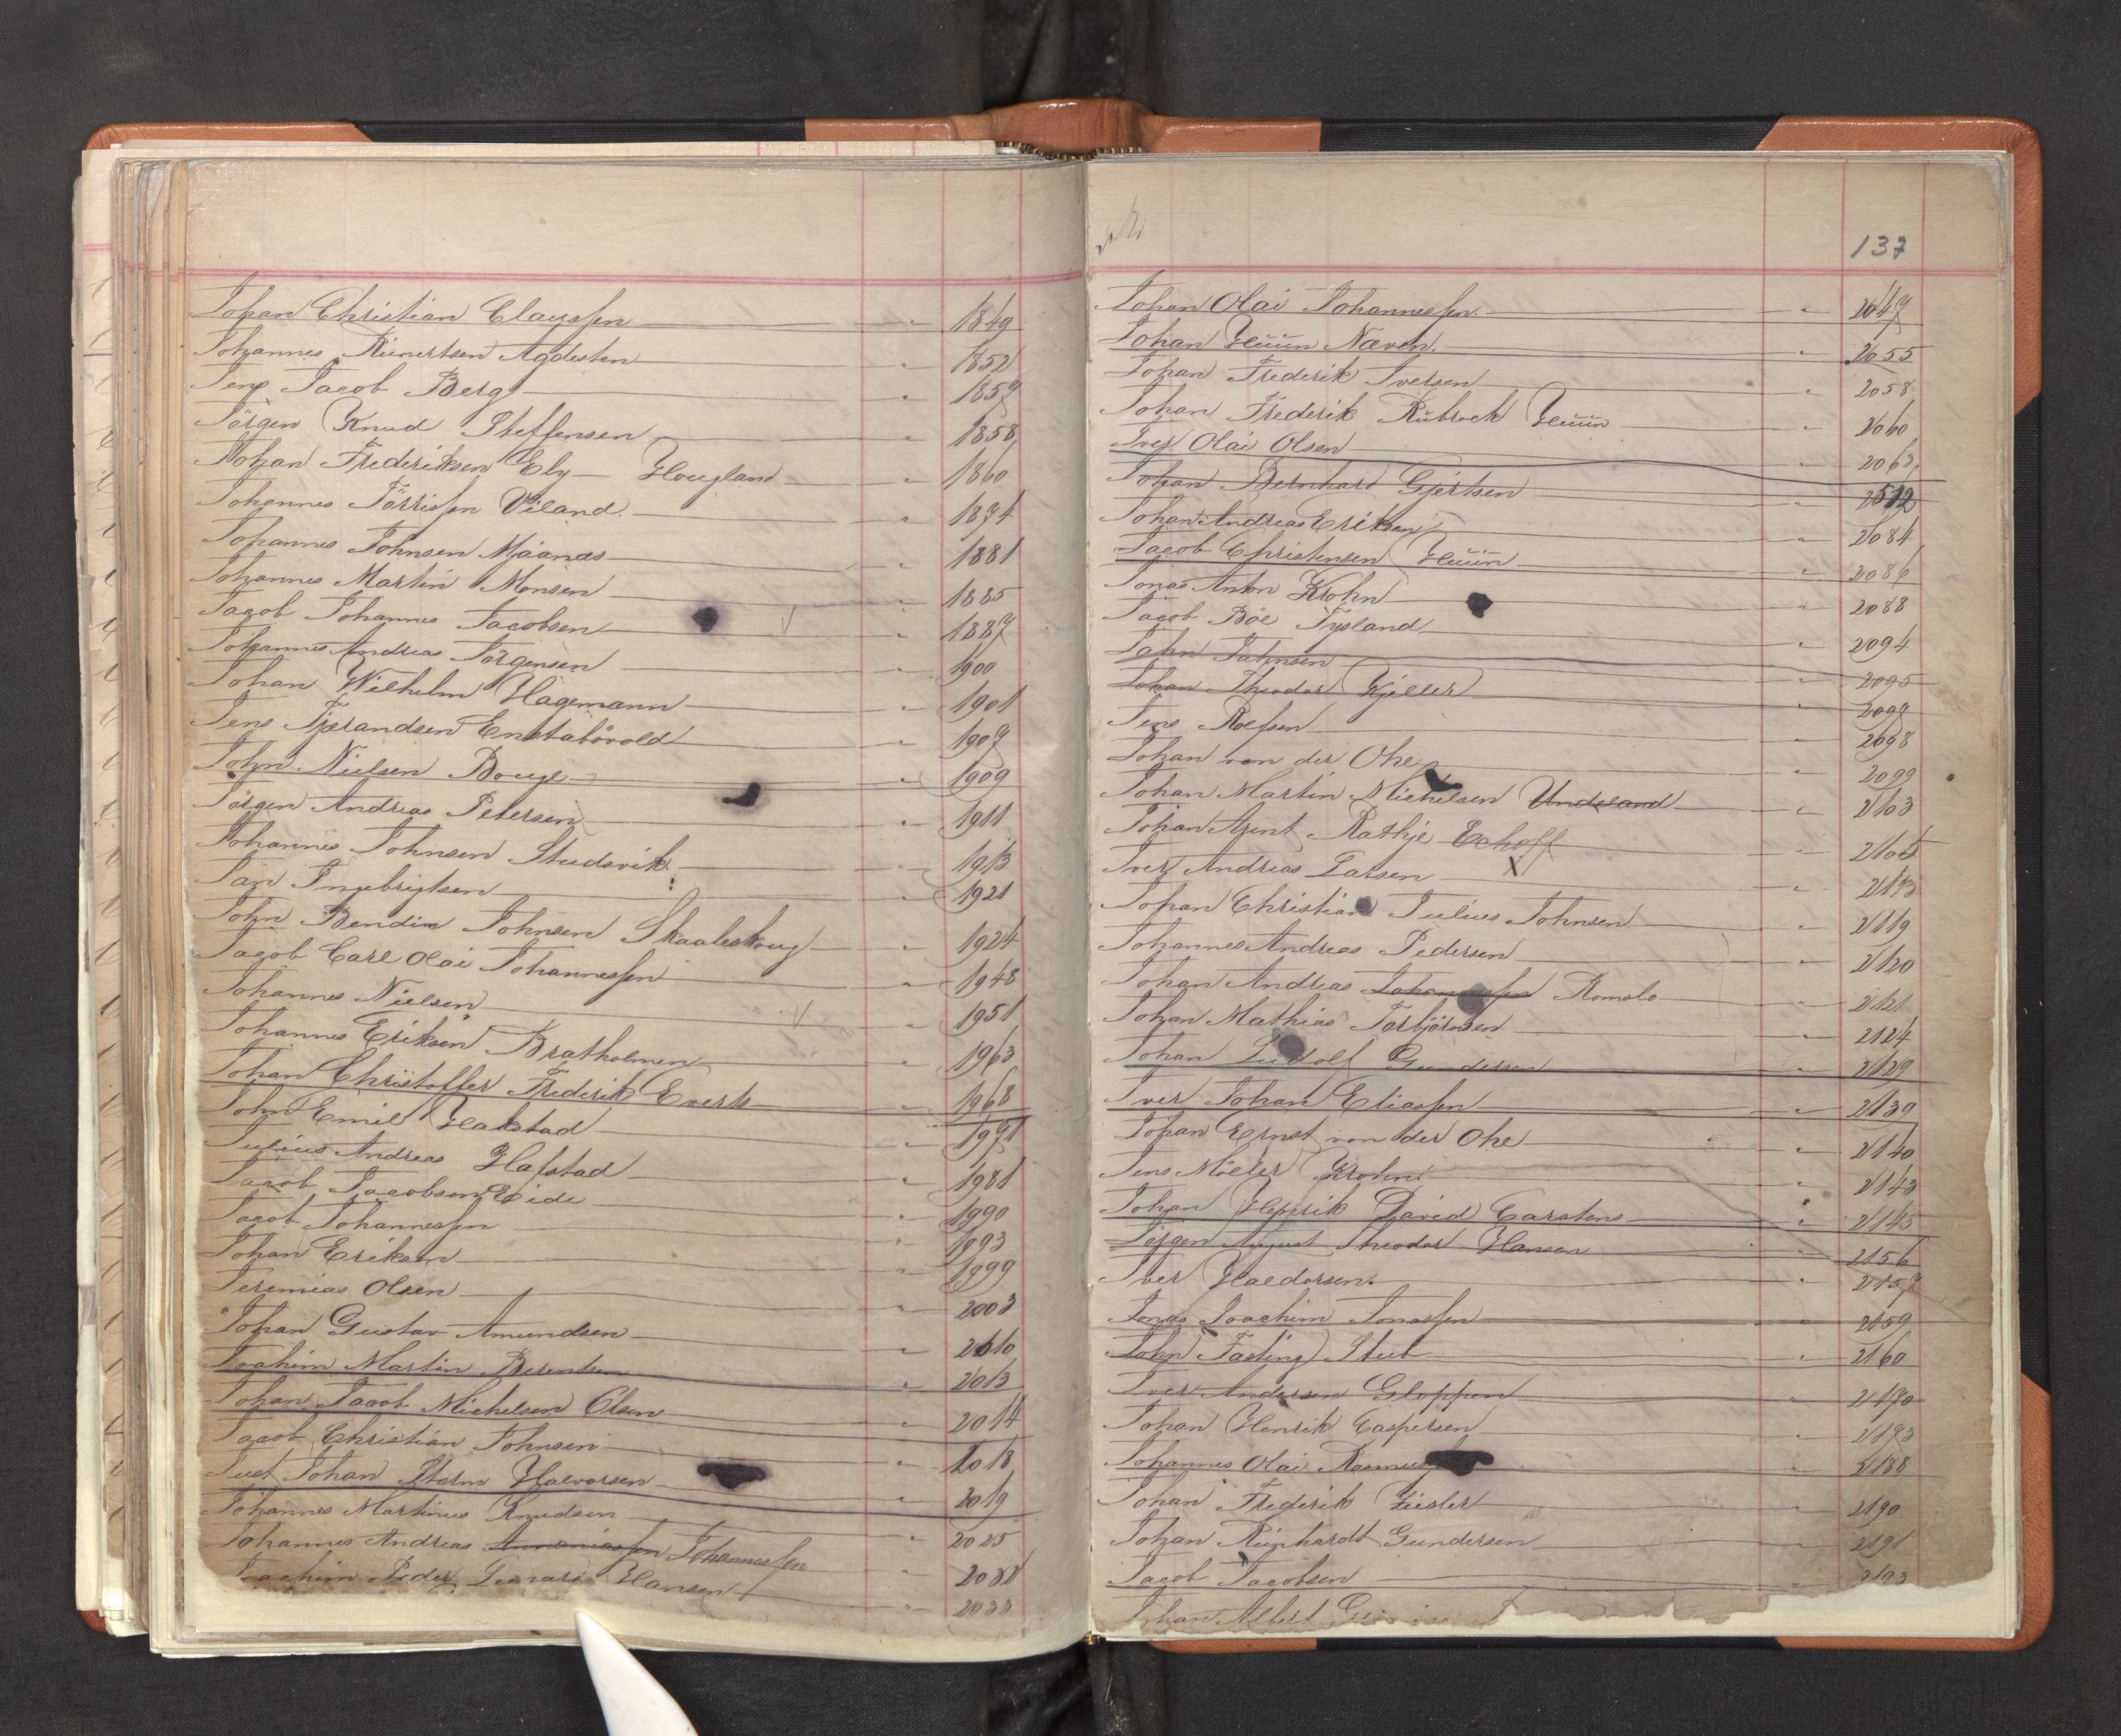 Johan Christian Claussen " 1849
Johannes Reinertsen Agdesten " 1852
Jens Jacob Berg " 1857
Jörgen Knud Steffensen " 1858
Johan Frederiksen Ely Hougland " 1860
Johannes Törrissen Viland " 1874
Johannes Johnsen Maanæs " 1881
Johannes Martin Monsen " 1885
Jacob Johannes Jacobsen " 1887
Johannes Andreas Jörgensen " 1900
Johan Wilhelm Hagemann " 1901
Jens Tjerandsen Enstabövold " 1907
John Nielsen Bouge " 1909
Jörgen Andreas Petersen " 1911
Johannes Johnsen Studsvik " 1913
Jan Ingebrigtsen " 1921
John Bendix Johnsen Skaaleskoug " 1924
Jacob Carl Olai Johannessen " 1948
Johannes Nielsen " 1951
Johannes Eriksen Bratholmen " 1963
Johan Christoffer Frederik Everts " 1968
John Emil Hakstad " 1971
Julius Andreas Hafstad " 1981
Jacob Jacobsen Eide " 1990
Jacob Johannessen " 1993
Johan Eriksen " 1999
Jeremias Olsen " 2003
Johan Gustav Amundsen " 2010
Joachim Martin Berentsen " 2013
Johan Jacob Michelsen Olsen " 2014
Jacob Christian Johnsen " 2018
Just Johan Storm Halvorsen " 2019
Johannes Martinus Knudsen " 2025
Johannes Andreas Johannessen "
Joachim Peder Hansen " 2033
137
Johan Olai Johannessen " 2047
Johan Huun Næven " 2055
Johan Frederik Iversen " 2058
Johan Frederik Rübrock Huun " 2060
Iver Olai Olsen " 2063
Johan Bernhard Gjertsen "
Johan Andreas Eriksen " 2084
Jacob Christensen Huun " 2086
Jonas Anton Krohn " 2088
Jacob Böe Tysland " 2094
John Johnsen " 2095
Johan Theodor Kjeller " 2097
Jens Roefsen " 2098
Johan von der Ohe " 2099
Johan Martin Michelsen Undeland " 2103
Johan Arent Rathje Echoff " 2105
Iver Andreas Larsen " 2113
Johan Christian Julius Johnsen " 2119
Johannes Andreas Pedersen " 2120
Johan Andreas Johannessen Romslo " 2121
Johan Mathias Torbjörnsen " 2124
Johan Ludolf Gundersen " 2129
Iver Johan Eliassen " 2139
Johan Ernst von der Ohe " 2140
Jens Möller Krohn " 2143
Johan Henrik David Carstens " 2145
Jörgen August Theodor Hansen " 2156
Iver Haldorsen " 2157
Jonas Joachim Jonassen " 2159
John Fasting Stub " 2160
Iver Andersen Gloppen " 2170
Johan Henrik Caspersen " 2173
Johannes Olai " 2188
Johan Frederik Giesler " 2190
Johan Reinhardt Gundersen " 2191
Jacob Jacobsen " 2193
Johan Albert